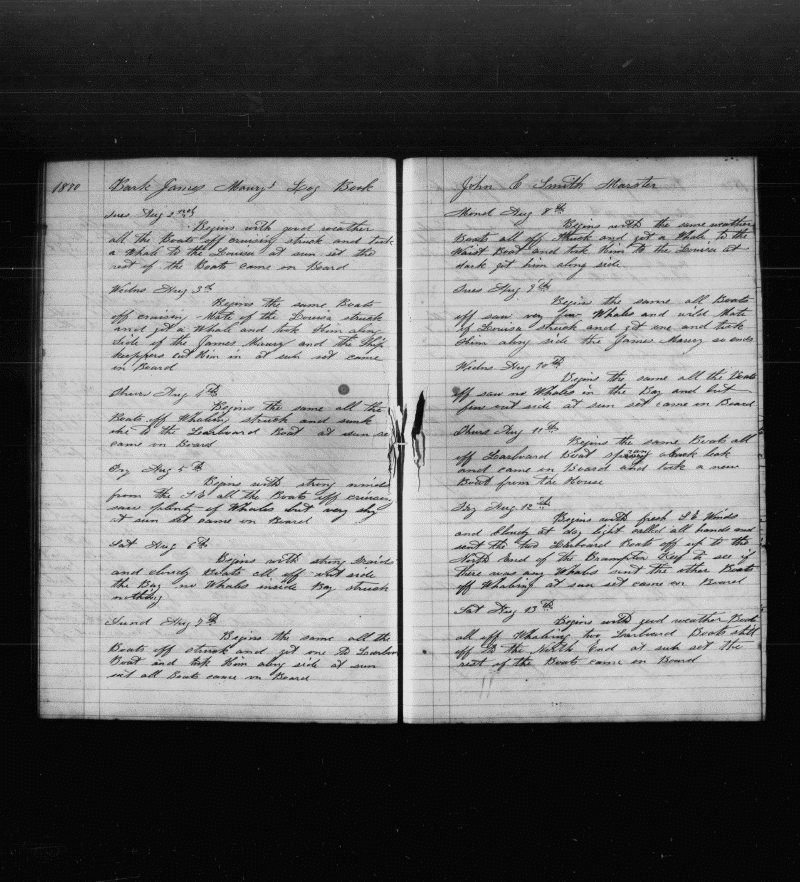 1870 Bark James Maury's Log Book
Tues Aug 2nd
Begins with good weather
all the Boats off cruising struck and took
a Whale to the Louisa at sun set the
rest of the Boats came on Board
Wedns Aug 3th
Begins the same Boats
off cruising Mate of the Louisa struck
and got a Whale and took Him along
side of the James Maury and the Ship
keeppers cut Him in at sun set came
on Board
Thurs Aug
Begins the same all the
Boats off Whaleing struck and sunk
to the Larboard Boat at sun set
came on Board
Fry Aug 5th
Begins with strong winds
from the S E all the Boats off cruising
saw plenty of Whales but very shy
at sun set came on Board
Sat Aug 6th
Begins with strong Winds
and cloudy Boats all off out side
the Bay no Whales inside Bay struck
nothing
Sund Aug 7th
Begins the same all the
Boats off struck and got one to Larboard
Boat and took Him along side at sun
set all Boats came on Board
John C Smith Marster
Mond Aug 8th
Begins with the same weather
Boats all off struck and got a Whale to the
Waist Boat and took Him to the Louisa at
dark got him along side
Tues Aug 9th
Begins the same all Boats
off saw very few Whales and wild Mate
of Louisa struck and got one and took
Him along side the James Maury so ends
Wedns Aug 10th
Begins the same all the Boats
off saw no Whales in the Bay and but
few out side at sun set came on Board
Thurs Aug 11th
Begins the same Boats all
off Larboard Boat sprung a leak
and came on Board and took a new
Boat from the House
Fry Aug 12th
Begins with fresh S E Winds
and Cloudy at day light called all hands and
sent the two Larboard Boats off up to the
North end of the Brampton Reef to see if
there was any Whales sent the other Boats
off Whaleing at sun set came on Board
Sat Aug 13th
Begins with good weather Boats
all off Whaleing two Larboard Boats still
off to the North End at sun set the
rest of the Boats came on Board